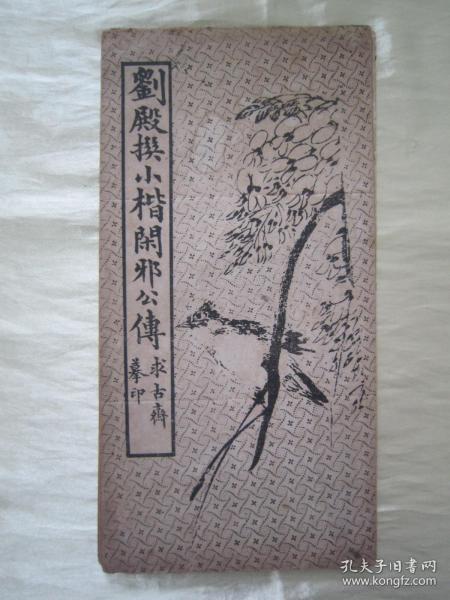 劉殿撰小楷閑邪公傳
求古齋
摹印
孔夫子旧书网
www.kongfz.com